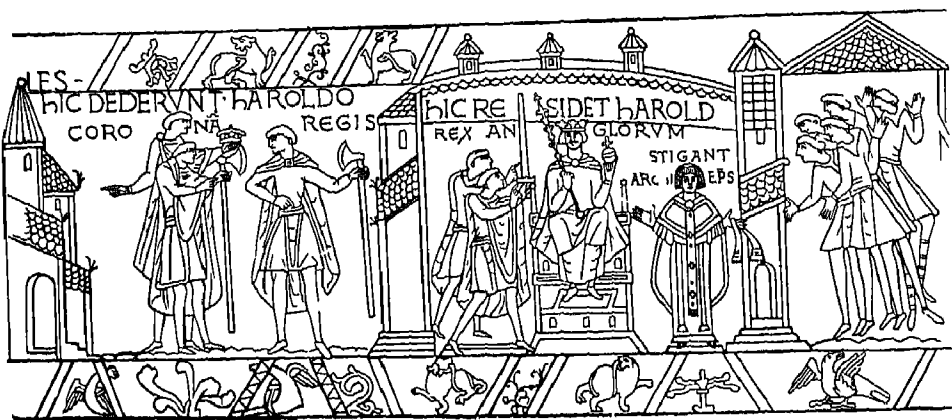 IES-
hIC DEDERVNT·hAROLDO
CORONÃ REGIS
hIC RESIDET hAROLD
REX ANGLORVM
STIGANT
ARCHIEPS